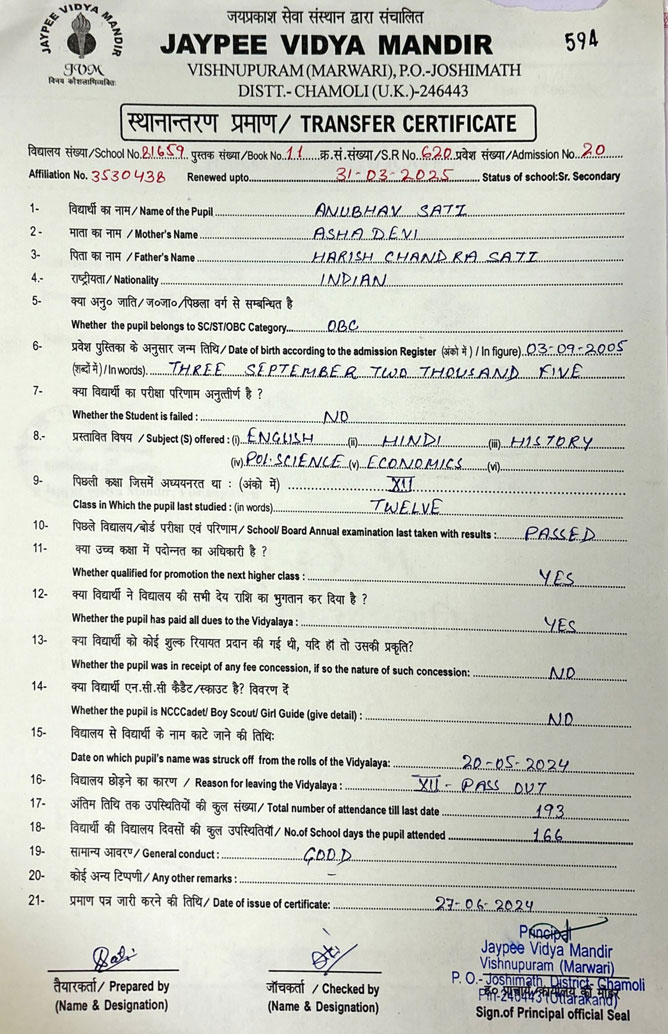 जयप्रकाश सेवा संस्थान द्वारा संचालित
JAYPEE VIDYA MANDIR
JVM
JAYPEE VIDYA MANDIR 594
VISHNUPURAM (MARWARI), P.O.-JOSHIMATH
DISTT.- CHAMOLI (U.K.)-246443
स्थानान्तरण प्रमाण/ TRANSFER CERTIFICATE
विद्यालय संख्या/School No. 81659 पुस्तक संख्या/Book No. 11 क्र.सं.संख्या/S.R No. 620 प्रवेश संख्या/Admission No. 20
Affiliation No. 3530438 Renewed upto 31-03-2025 Status of school:Sr. Secondary
1- विद्यार्थी का नाम/ Name of the Pupil ANUBHAV SATI
2 - माता का नाम / Mother's Name ASHA DEVI
3- पिता का नाम / Father's Name HARISH CHANDRA SATI
4.- राष्ट्रीयता/ Nationality INDIAN
5- क्या अनु० जाति/ ज०जा०/पिछला वर्ग से सम्बन्धित है
Whether the pupil belongs to SC/ST/OBC Category OBC
6- प्रवेश पुस्तिका के अनुसार जन्म तिथि/ Date of birth according to the admission Register (अंको में ) / In figure) 03-09-2005
(शब्दों में)/ In words) THREE SEPTEMBER TWO THOUSAND FIVE
7- क्या विद्यार्थी का परीक्षा परिणाम अनुत्तीर्ण है ?
Whether the Student is failed : NO
8.- प्रस्तावित विषय / Subject (S) offered : (i) ENGLISH (ii) HINDI (iii) HISTORY
(iv) POL.SCIENCE (v) ECONOMICS (vi)
9- पिछली कक्षा जिसमें अध्ययनरत था : (अंको में) XII
Class in Which the pupil last studied : (in words) TWELVE
10- पिछले विद्यालय/बोर्ड परीक्षा एवं परिणाम/ School/ Board Annual examination last taken with results : PASSED
11- क्या उच्च कक्षा में पदोन्नत का अधिकारी है ?
Whether qualified for promotion the next higher class : YES
12- क्या विद्यार्थी ने विद्यालय की सभी देय राशि का भुगतान कर दिया है ?
Whether the pupil has paid all dues to the Vidyalaya : YES
13- क्या विद्यार्थी को कोई शुल्क रियायत प्रदान की गई थी, यदि हाँ तो उसकी प्रकृति?
Whether the pupil was in receipt of any fee concession, if so the nature of such concession: NO
14- क्या विद्यार्थी एन.सी.सी कैडैट/स्काउट है? विवरण दें
Whether the pupil is NCCCadet/ Boy Scout/ Girl Guide (give detail) : NO
15- विद्यालय से विद्यार्थी के नाम काटे जाने की तिथि:
Date on which pupil's name was struck off from the rolls of the Vidyalaya: 20-05-2024
16- विद्यालय छोड़ने का कारण / Reason for leaving the Vidyalaya : XII - PASS OUT
17- अंतिम तिथि तक उपस्थितियों की कुल संख्या/ Total number of attendance till last date 193
18- विद्यार्थी की विद्यालय दिवसों की कुल उपस्थितियाँ/ No.of School days the pupil attended 166
19- सामान्य आवरण/ General conduct : GOOD
20- कोई अन्य टिप्पणी/ Any other remarks : –
21- प्रमाण पत्र जारी करने की तिथि/ Date of issue of certificate: 27-06-2024
Principal
Jaypee Vidya Mandir
Vishnupuram (Marwari)
P. O.- Joshimath, District- Chamoli
Pin-246443 (Uttarakand)
तैयारकर्ता / Prepared by
(Name & Designation)
जाँचकर्ता / Checked by
(Name & Designation)
ह० प्राचार्य/कार्यालय की मोहर
Sign.of Principal official Seal